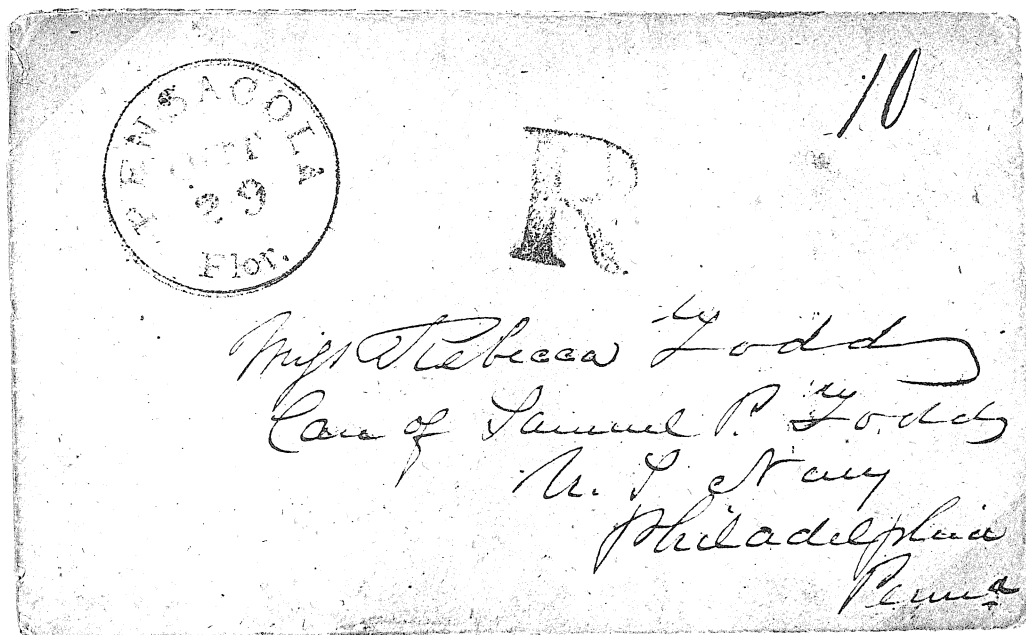 10
PENSACOLA
OCT
29
Flor.
R
Miss Rebecca Todd
Care of Samuel P. Todd
U. S Navy
Philadelphia
Penna